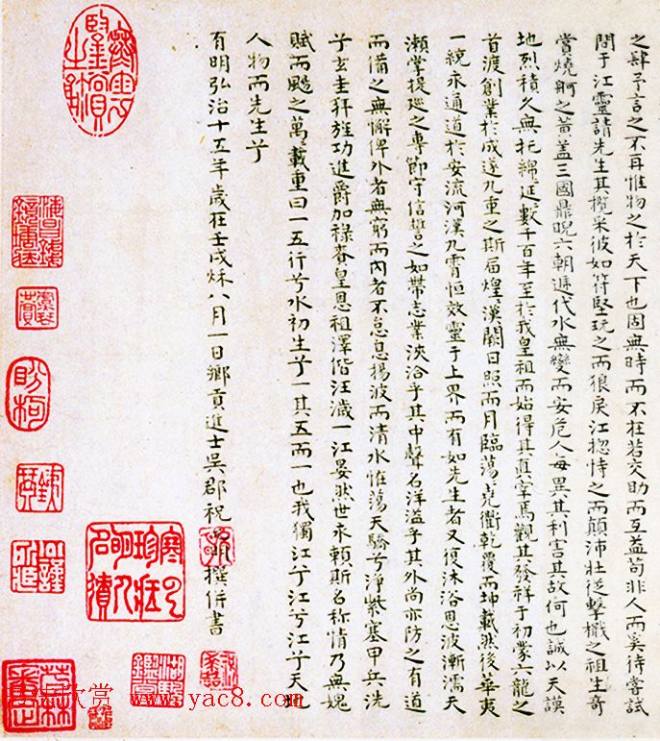 之肆予言之不再惟物之於天下也固無時而不在若交助而互益苟非人而奚待嘗試
問于江靈請先生其攬采彼如符堅玩之而狼戾江惚恃之而顛沛壯逆擊檝之祖生奇
賞燒舸之黃蓋三國鼎睨六朝遞代水無變而安危人每異其利害其故何也誠以天漠
地烈積久無托綿延數千百年至於我皇祖而始得其真宰焉觀其發祥于初蒙六龍之
首渡創業於成遂九重之斯届煌漢闕日照而月臨蕩堯衢乾覆而坤載然後華夷
一統永通道於安流河漢九霄恒效靈于上界而有如先生者又復沐浴恩波漸濡天
瀬掌提巡之專節守信誓之如帶志業浹洽乎其中聲名洋溢乎其外尚亦防之有道
而備之無懈俾外者無窮而內者不怠息揚波而清水惟蕩天驕兮淨紫塞甲兵洗
子玄圭拜旌功進爵加祿眷皇恩祖澤偕汪濊一江晏然世永賴斯名称情乃無媿
賦而颺之萬載重曰一五行兮水初生兮一其五而一也我獨江兮江兮江兮天地
人物而先生兮
有明弘治十五年歲在壬戌秌八月一日鄉貢進士吳郡祝允明撰併書
欣赏 www.yac8.com